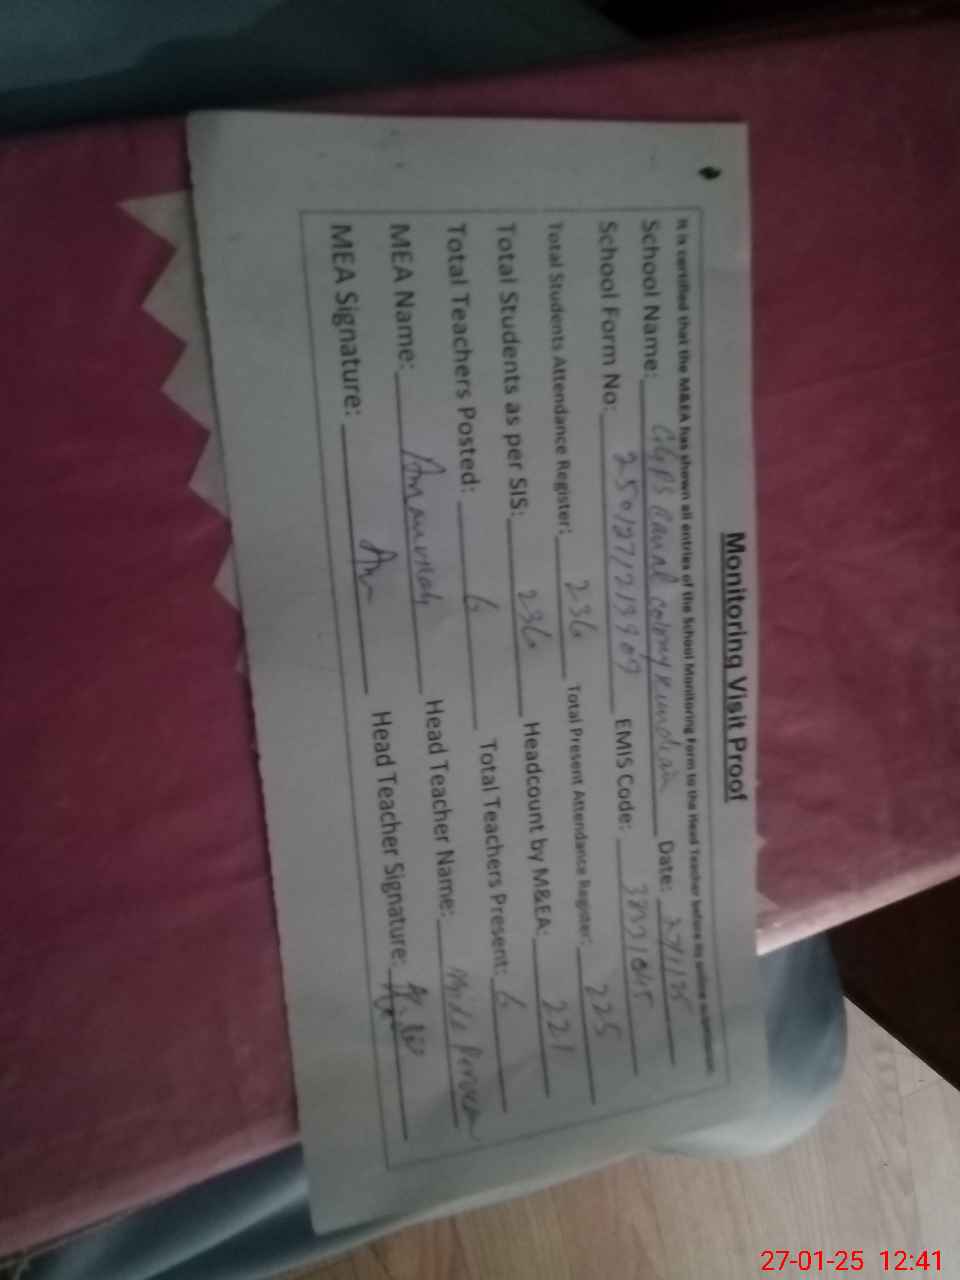 Monitoring Visit Proof
It is certified that the M&EA has shown all entries of the School Monitoring Form to the Head Teacher before its online submission
School Name: GGPS Canal colony Kundian Date: 27/1/25
School Form No: 250127213909 EMIS Code:
Total Students Attendance Register: 236 Total Present Attendance Register: 225
Total Students as per SIS: 236 Headcount by M&EA: 221
Total Teachers Posted: 6 Total Teachers Present: 6
MEA Name: Head Teacher Name:
MEA Signature: Head Teacher Signature:
27-01-25 12:41